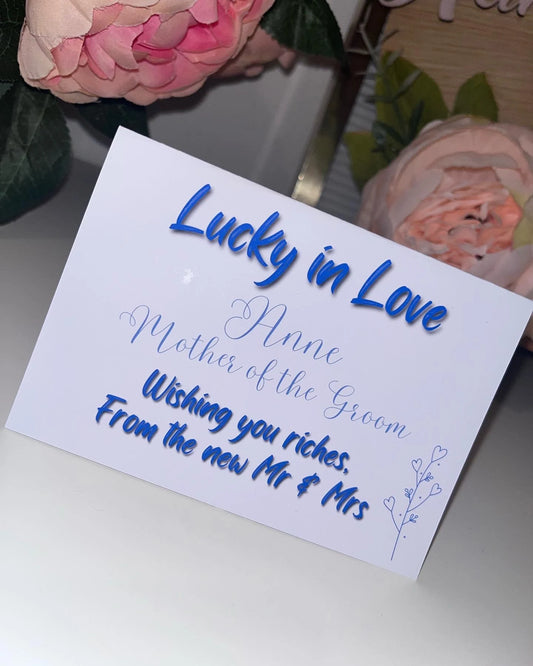 Lucky in Love
Anne
Mother of the Groom
Wishing you riches,
From the new Mr & Mrs